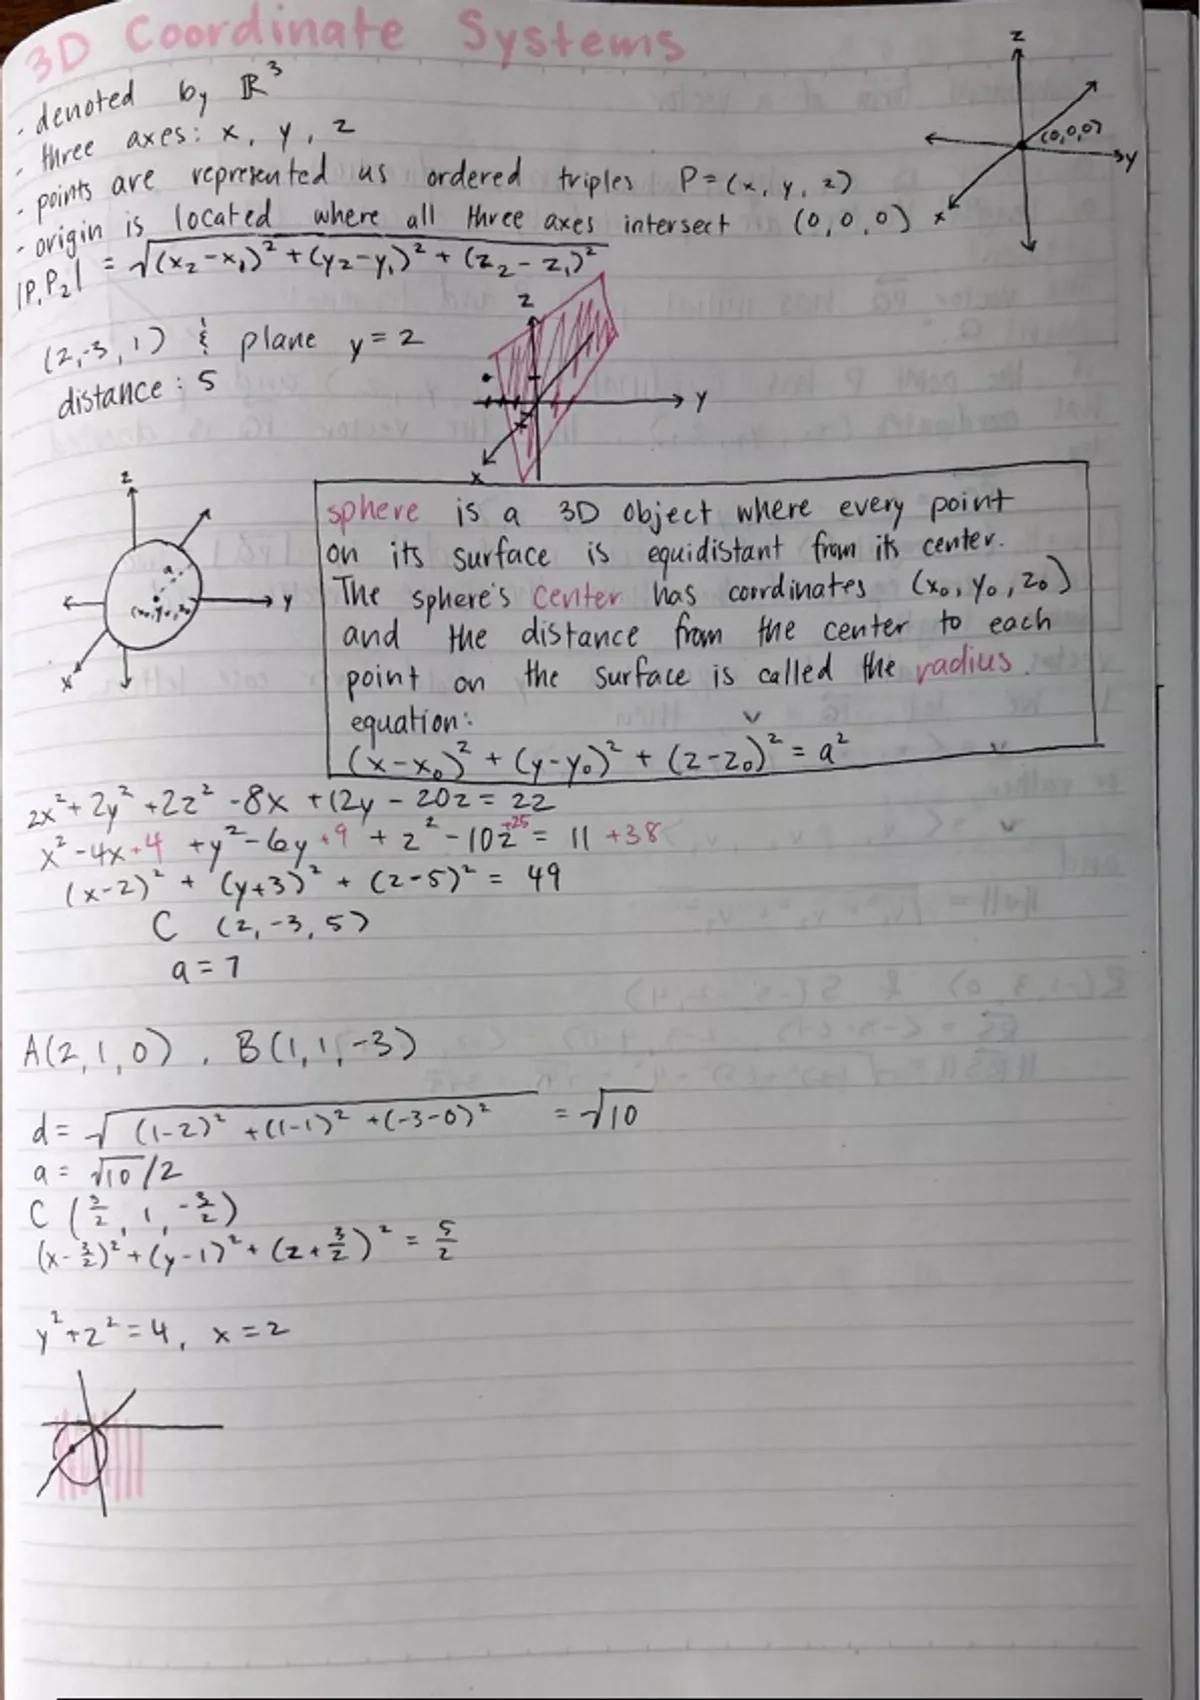 3D Coordinate Systems
· denoted by ℝ³
· three axes: x, y, z
· points are represented as ordered triples P = (x, y, z)
· origin is located where all three axes intersect (0, 0, 0)
z
(0,0,0)
y
x
|P₁P₂| = √((x₂-x₁)² + (y₂-y₁)² + (z₂-z₁)²)
(2,-3,1) & plane y = 2
distance: 5
z
y
x
z
a
(x₀,y₀,z₀)
y
x
sphere is a 3D object where every point
on its surface is equidistant from its center.
The sphere's center has coordinates (x₀, y₀, z₀)
and the distance from the center to each
point on the surface is called the radius.
equation:
(x-x₀)² + (y-y₀)² + (z-z₀)² = a²
2x² + 2y² + 2z² - 8x + 12y - 20z = 22
x² - 4x + 4 + y² - 6y + 9 + z² - 10z + 25 = 11 + 38
(x-2)² + (y+3)² + (z-5)² = 49
C (2, -3, 5)
a = 7
A(2,1,0), B(1,1,-3)
d = √((1-2)² + (1-1)² + (-3-0)²) = √10
a = √10/2
C (3/2, 1, -3/2)
(x - 3/2)² + (y-1)² + (z + 3/2)² = 5/2
y² + z² = 4, x = 2